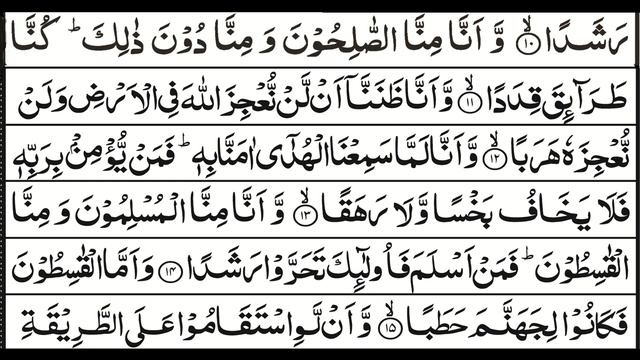 رَشَدًا ۙ﴿۱۰﴾ وَّ اَنَّا مِنَّا الصّٰلِحُوْنَ وَ مِنَّا دُوْنَ ذٰلِكَ ؕ كُنَّا
طَرَآئِقَ قِدَدًا ۙ﴿۱۱﴾ وَّ اَنَّا ظَنَنَّاۤ اَنْ لَّنْ نُّعْجِزَ اللّٰهَ فِی الْاَرْضِ وَ لَنْ
نُّعْجِزَهٗ هَرَبًا ۙ﴿۱۲﴾ وَّ اَنَّا لَمَّا سَمِعْنَا الْهُدٰۤی اٰمَنَّا بِهٖ ؕ فَمَنْ یُّؤْمِنْۢ بِرَبِّهٖ
فَلَا یَخَافُ بَخْسًا وَّ لَا رَهَقًا ۙ﴿۱۳﴾ وَّ اَنَّا مِنَّا الْمُسْلِمُوْنَ وَ مِنَّا
الْقٰسِطُوْنَ ؕ فَمَنْ اَسْلَمَ فَاُولٰٓئِكَ تَحَرَّوْا رَشَدًا ﴿۱۴﴾ وَ اَمَّا الْقٰسِطُوْنَ
فَكَانُوْا لِجَهَنَّمَ حَطَبًا ۙ﴿۱۵﴾ وَّ اَنْ لَّوِ اسْتَقَامُوْا عَلَی الطَّرِیْقَةِ